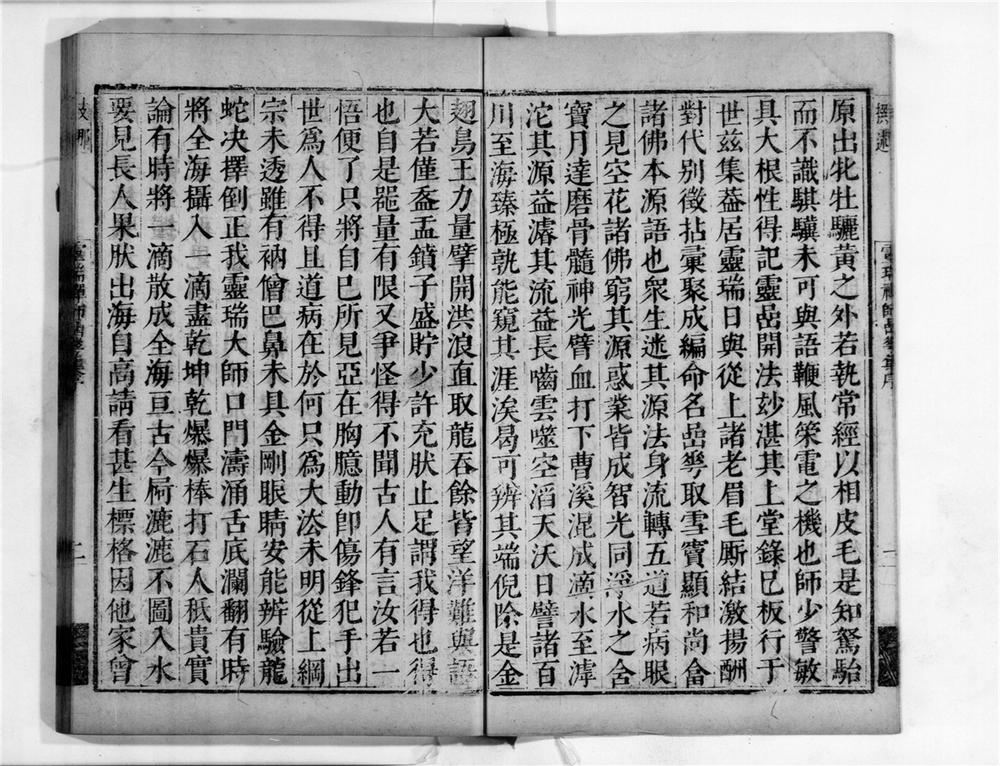 原出牝牡驪黃之外若執常經以相皮毛是知駑駘
而不識騏驥未可與語鞭風策電之機也師少警敏
具大根性得記靈嵒開法妙湛其上堂錄已板行于
世茲集葢居靈瑞日與從上諸老眉毛厮結激揚酬
對代別徵拈彙聚成編命名嵒華取雪竇顯和尚㑹
諸佛本源語也衆生迷其源法身流轉五道若病眼
之見空花諸佛窮其源惑業皆成智光同淨水之含
寶月達磨骨髓神光臂血打下曹溪混成滴水至滹
沱其源益濬其流益長嚙雲噬空滔天沃日譬諸百
川至海臻極孰能窺其涯涘曷可辨其端倪除是金
翅鳥王力量擘開洪浪直取龍吞餘皆望洋難與語
大若僅盃盂鐼子盛貯少許充肰止足謂我得也得
也自是噐量有限又爭怪得不聞古人有言汝若一
悟便了只將自己所見亞在胸臆動即傷鋒犯手出
世爲人不得且道病在於何只爲大泫未明從上綱
宗未透雖有衲僧巴鼻未具金剛眼睛安能辨驗龍
蛇决擇倒正我靈瑞大師口門濤涌舌底瀾翻有時
將全海攝入一滴盡乾坤乾爆爆棒打石人秖貴實
論有時將一滴散成全海亘古今㣂漉漉不圖入水
要見長人果肰出海自高請看甚生標格因他家曾